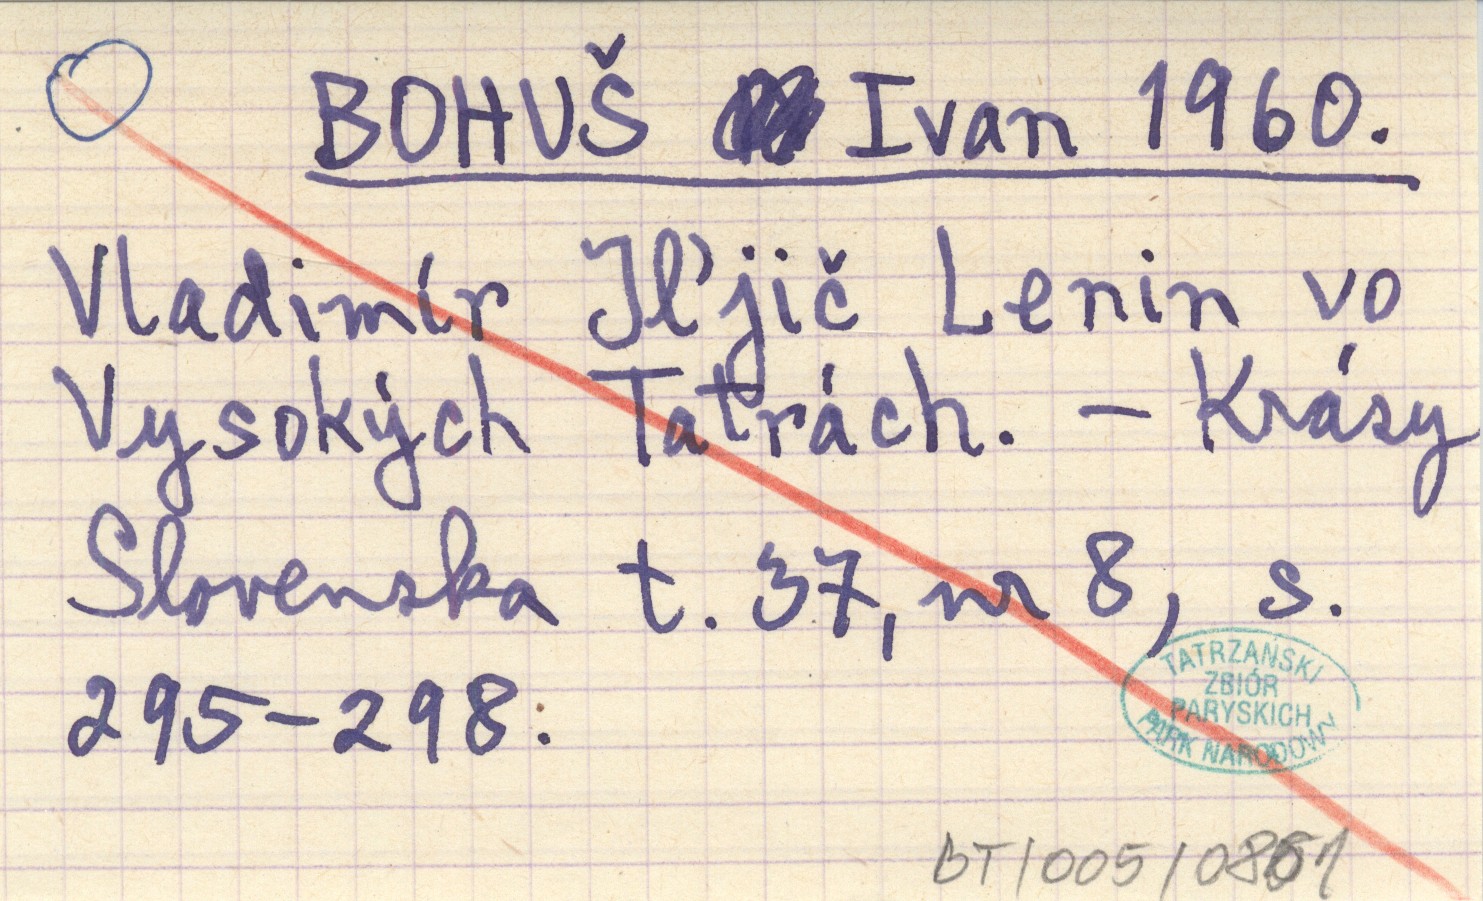 BOHUŠ Ivan 1960.
Vladimír Iľjič Lenin vo
Vysokých Tatrách. – Krásy
Slovenska t. 37, nr 8, s.
295–298.
TATRZAŃSKI
ZBIÓR
PARYSKICH
PARK NARODOWY
BT/005/0861